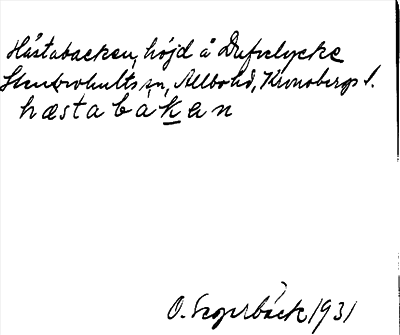 Hästabacken, höjd å Dufvelycke
Stenbrohults sn, Allbo hd, Kronobergs l.
hæstabakan
O. Segerbäck 1931